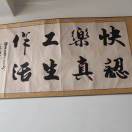 快樂工作
認真生活